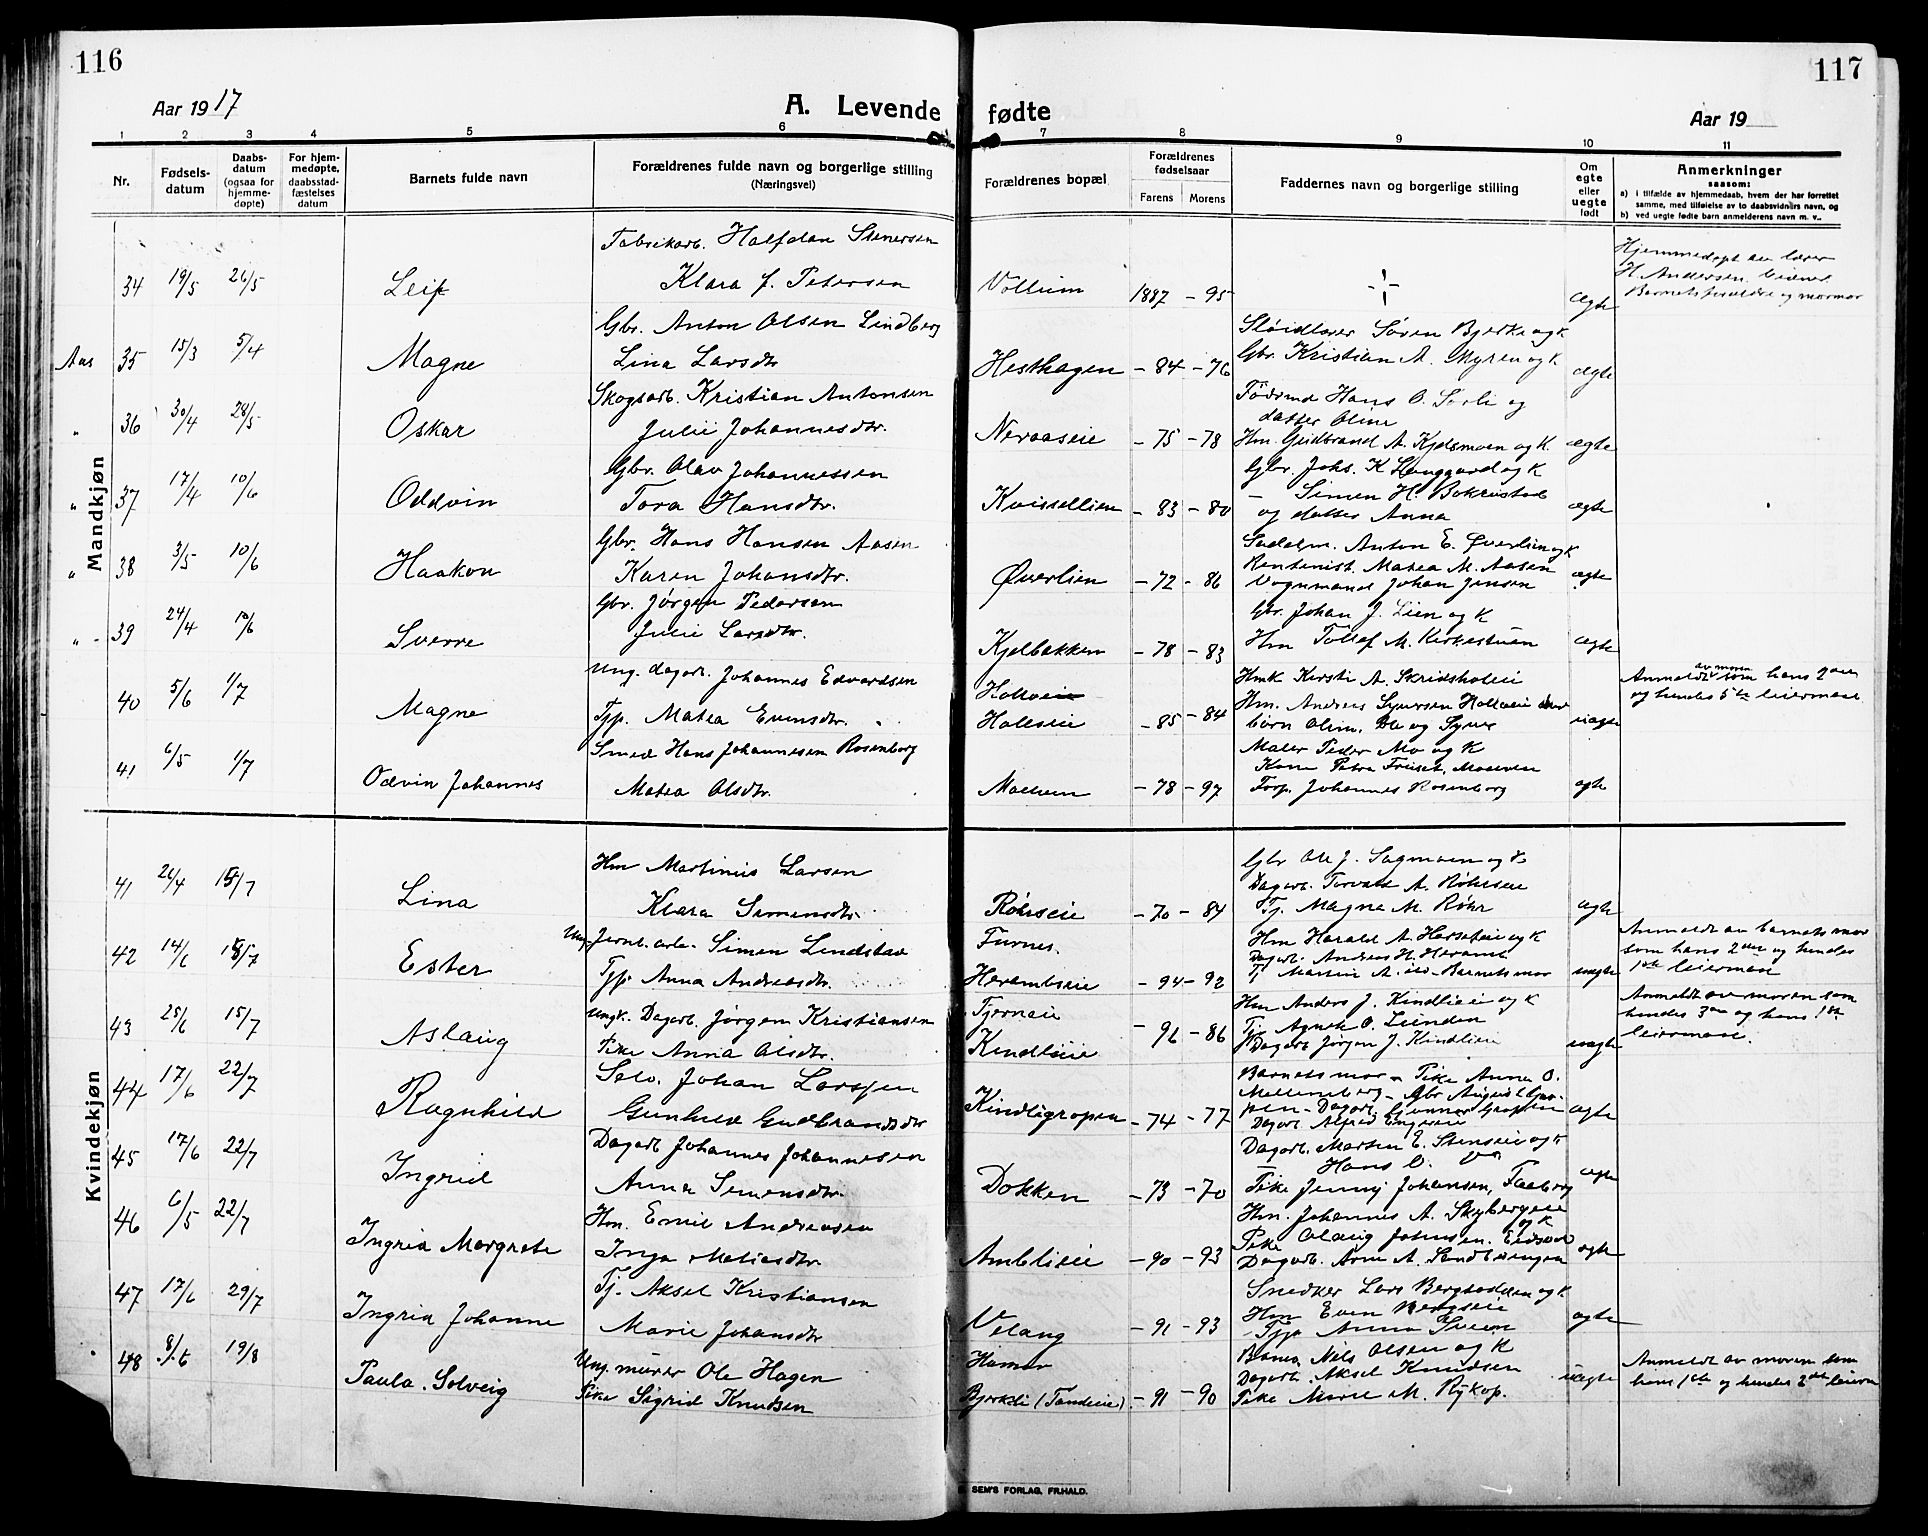 116
117
Aar 1917
A. Levende fødte
Aar 19
1 2 3 4 5 6 7 8 9 10 11
Nr.
Fødsels-
datum
Daabs-
datum
(ogsaa for
hjemme-
døpte)
For hjem-
medøpte,
daabsstad-
fæstelses
datum
Barnets fulde navn
Forældrenes fulde navn og borgerlige stilling
(Næringsvei)
Forældrenes bopæl
Forældrenes
fødselsaar
Farens Morens
Faddernes navn og borgerlige stilling
Om
egte
eller
uegte
født
Anmerkninger
saasom:
a) i tilfælde av hjemmedaab, hvem der har forrettet
samme, med tilføielse av to daabsvidners navn, og
b) ved uegte fødte barn anmelderens navn m. v..
Mandkjøn
34 19/5 26/5 Leif
Fabrikarb. Halfdan Stenersen
Klara f. Petersen
Vollum 1887 - 95 ægte
Hjemmedøpt av lærer
H. Andersen.
Barnets forældre og mormor
Aas 35 15/3 5/4 Magne
Gbr. Anton Olsen Lindberg
Lina Larsdtr
Hesthagen - 84 - 76
Sløidlærer Søren Bjerke og k
Gbr. Kristian A. Myren og k
ægte
" 36 30/4 28/5 Oskar
Skogsarb. Kristian Antonsen
Julie Johannesdtr.
Neraaseie - 75 - 78
Føderaad Hans O. Sørli og
datter Oline
Hm. Gudbrand A. Kjelsmoen og k.
ægte
" 37 17/4 10/6 Oddvin
Gbr. Olav Johannessen
Tora Hansdtr.
Kvissellien - 83 - 80
Gbr. Johs. K Hauggard og k
- Simen H.
og datter Anna
ægte
" 38 3/5 10/6 Haakon
Gbr. Hans Hansen Aasen
Karen Johansdtr.
Øverlien - 72 - 86
Anton E. Øverlien og k
Rentenist. Matea M. Aasen
Vognmand Johan Jensen
ægte
" - 39 24/4 10/6 Sverre
Gbr. Jørgen Pedersen
Julie Larsdtr.
Kjelbakken - 78 - 83
Gbr. Johan J. Lien og k
Hm Tollef M. Kirkestuen
ægte
40 5/6 1/7 Magne
Ung. dagarb. Johannes Edvardsen
Tjp. Matea Evensdtr.
Holleie
Hollseie - 85 - 84
Hmk Kirsti A. Skridsholeie
Hm. Andreas Syversen Holleeie
børn Olim, Ole og Syver
uægte
Anmeldt av moren som hans 2den
og hendes 5te leiermaal
41 6/5 1/7 Odvin Johannes
Smed Hans Johannesen Rosenborg
Matea Olsdtr.
Maelum - 78 - 97
Maler Peder Mo og k
Kone Petra Friiset,
Forp. Johannes Rosenborg
egte
Kvindekjøn
41 26/4 15/7 Lina
Hm Martinius Larsen
Klara Simensdtr.
Røhrseie - 70 - 84
Gbr Ole J. Sagmoen og k
Dagarb. Torvald A. Røhrseie
Tj. Magna M. Røhr
egte
42 14/6 15/7 Ester
Ung. Jernb. arb. Simen Lindstad
Tjp. Anna Andreasdtr.
Furnes.
Herambseie - 94 - 92
Hm Harald A. Herseteie og k
Dagarb. Andreas H. Heramb
Tj Martin A. - Barnets mor
uegte
Anmeldt av barnets mor
som hans 2den og hendes
1ste leiermaal
43 25/6 15/7 Aslaug
Ungk. Dagarb. Jørgen Kristiansen
Pike Anna Olsdtr.
Tjerneie
Kindlieie - 96 - 86
Hm Anders J. Kindlieie og k
Tj. Agnete O. Lunden
Dagarb Jørgen J. Kindlieie
uegte
Anmeldt av moren som
hendes 3die og hans 1ste
leiermaal.
44 17/6 22/7 Ragnhild
Selv. Johan Larssen
Gunhild Gudbrandsdtr
Kindligropen - 74 - 77
Barnets mor - Pike Anna O.
- Gbr August
- Dagarb. Gunnar Gropen
Dagarb. Alfred Engeseie
egte
45 17/6 22/7 Ingrid
Dagarb Johannes Johannesen
Anna Simensdtr.
Dokken - 73 - 70
Dagarb. Martin E. Stenseie og k
Hans O.
Pike Jenny Johansen, Faaberg
egte
46 6/5 22/7 Ingrid Margrete
Hm. Emil Andreasen
Inga Matiasdtr
Amblieie - 90 - 93
Hm. Johannes A. Skybergeie
og k
Pike Olaug Johnsen. Eidsvold
Dagarb. Arne A. Sandbakengen
egte
47 17/6 29/7 Ingrid Johanne
Tj. Aksel Kristiansen
Marie Johansdtr
Velang - 91 - 93
Snedker Lars Bergsodden og k
Hm Even Bergseie
Tjp Anna Sveen
egte
48 8/6 19/8 Paula Solveig
Ung. mürer Ole Hagen
Pike Sigrid Knudsen
Hamar
Bjerkeli (Tandeie) - 91 - 90
Nils Olsen og k
Dagarb. Aksel Knudsen
Pike Marie M. Rykop.
uegte
Anmeldt av moren som
hans 1ste og hendes 2det leierm
SEM'S FORLAG, FR.HALD.